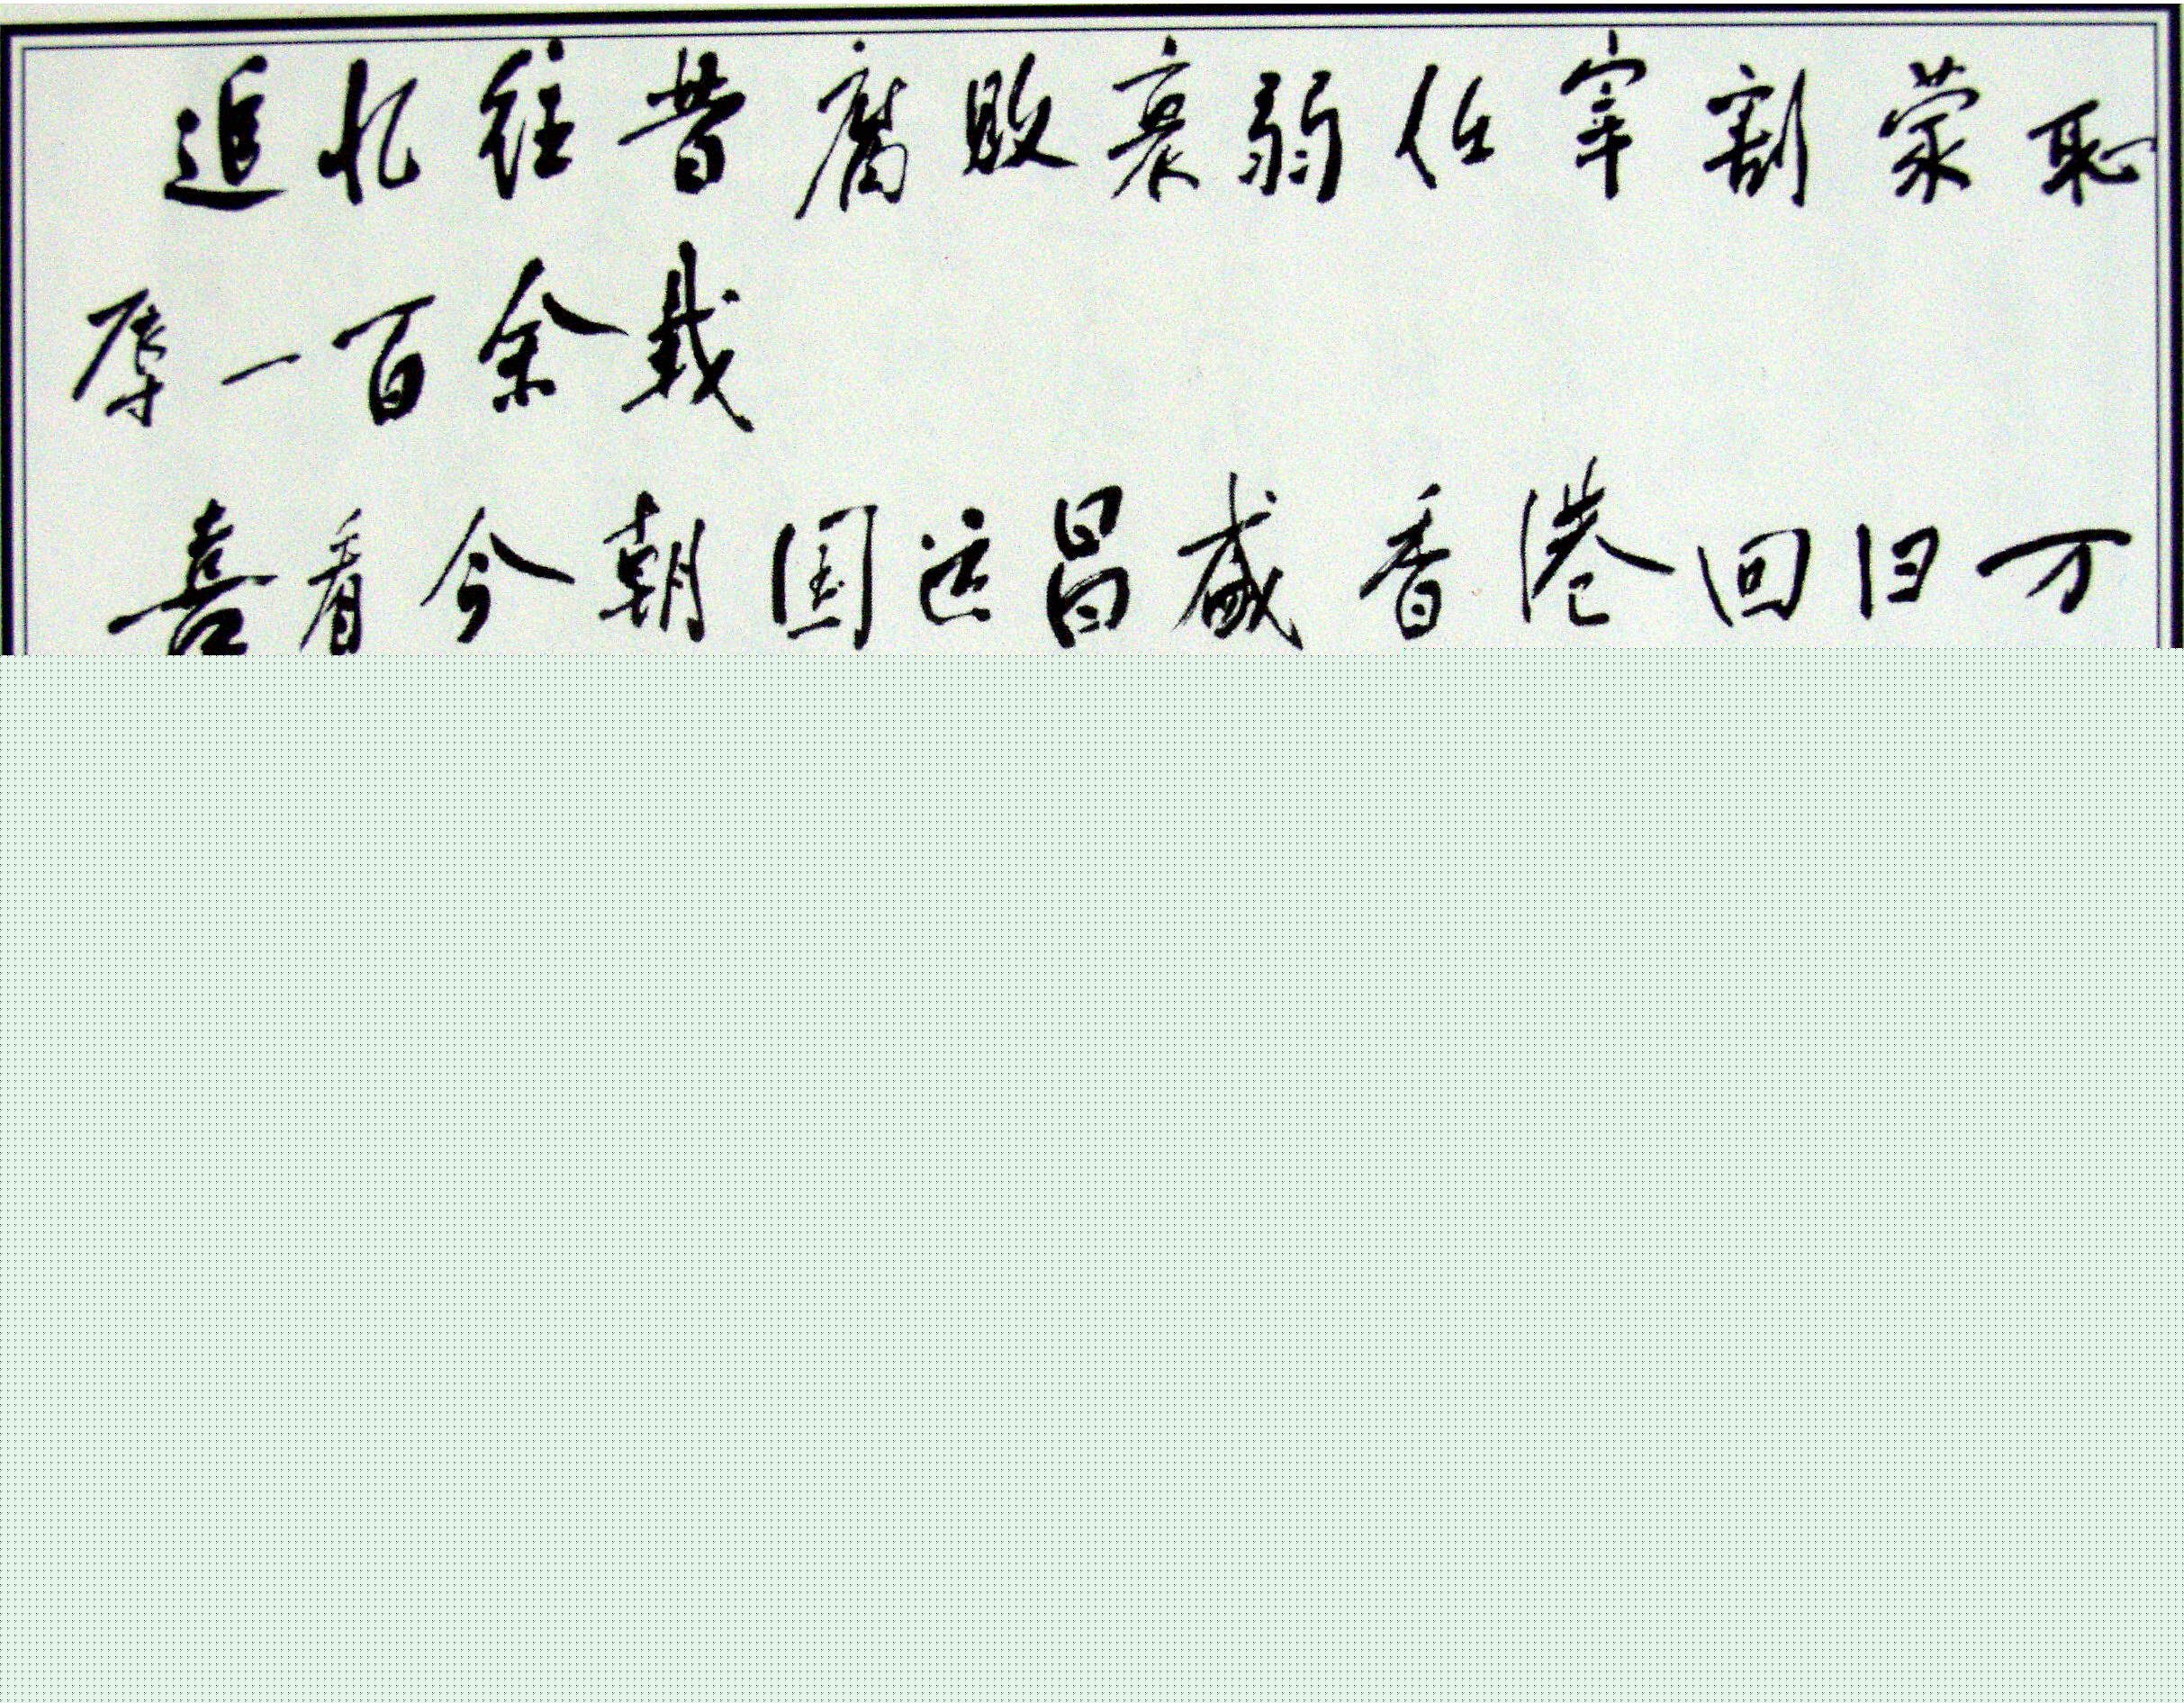 追忆往昔腐败衰弱任宰割蒙耻
辱一百余载
喜看今朝国运昌盛香港回归万